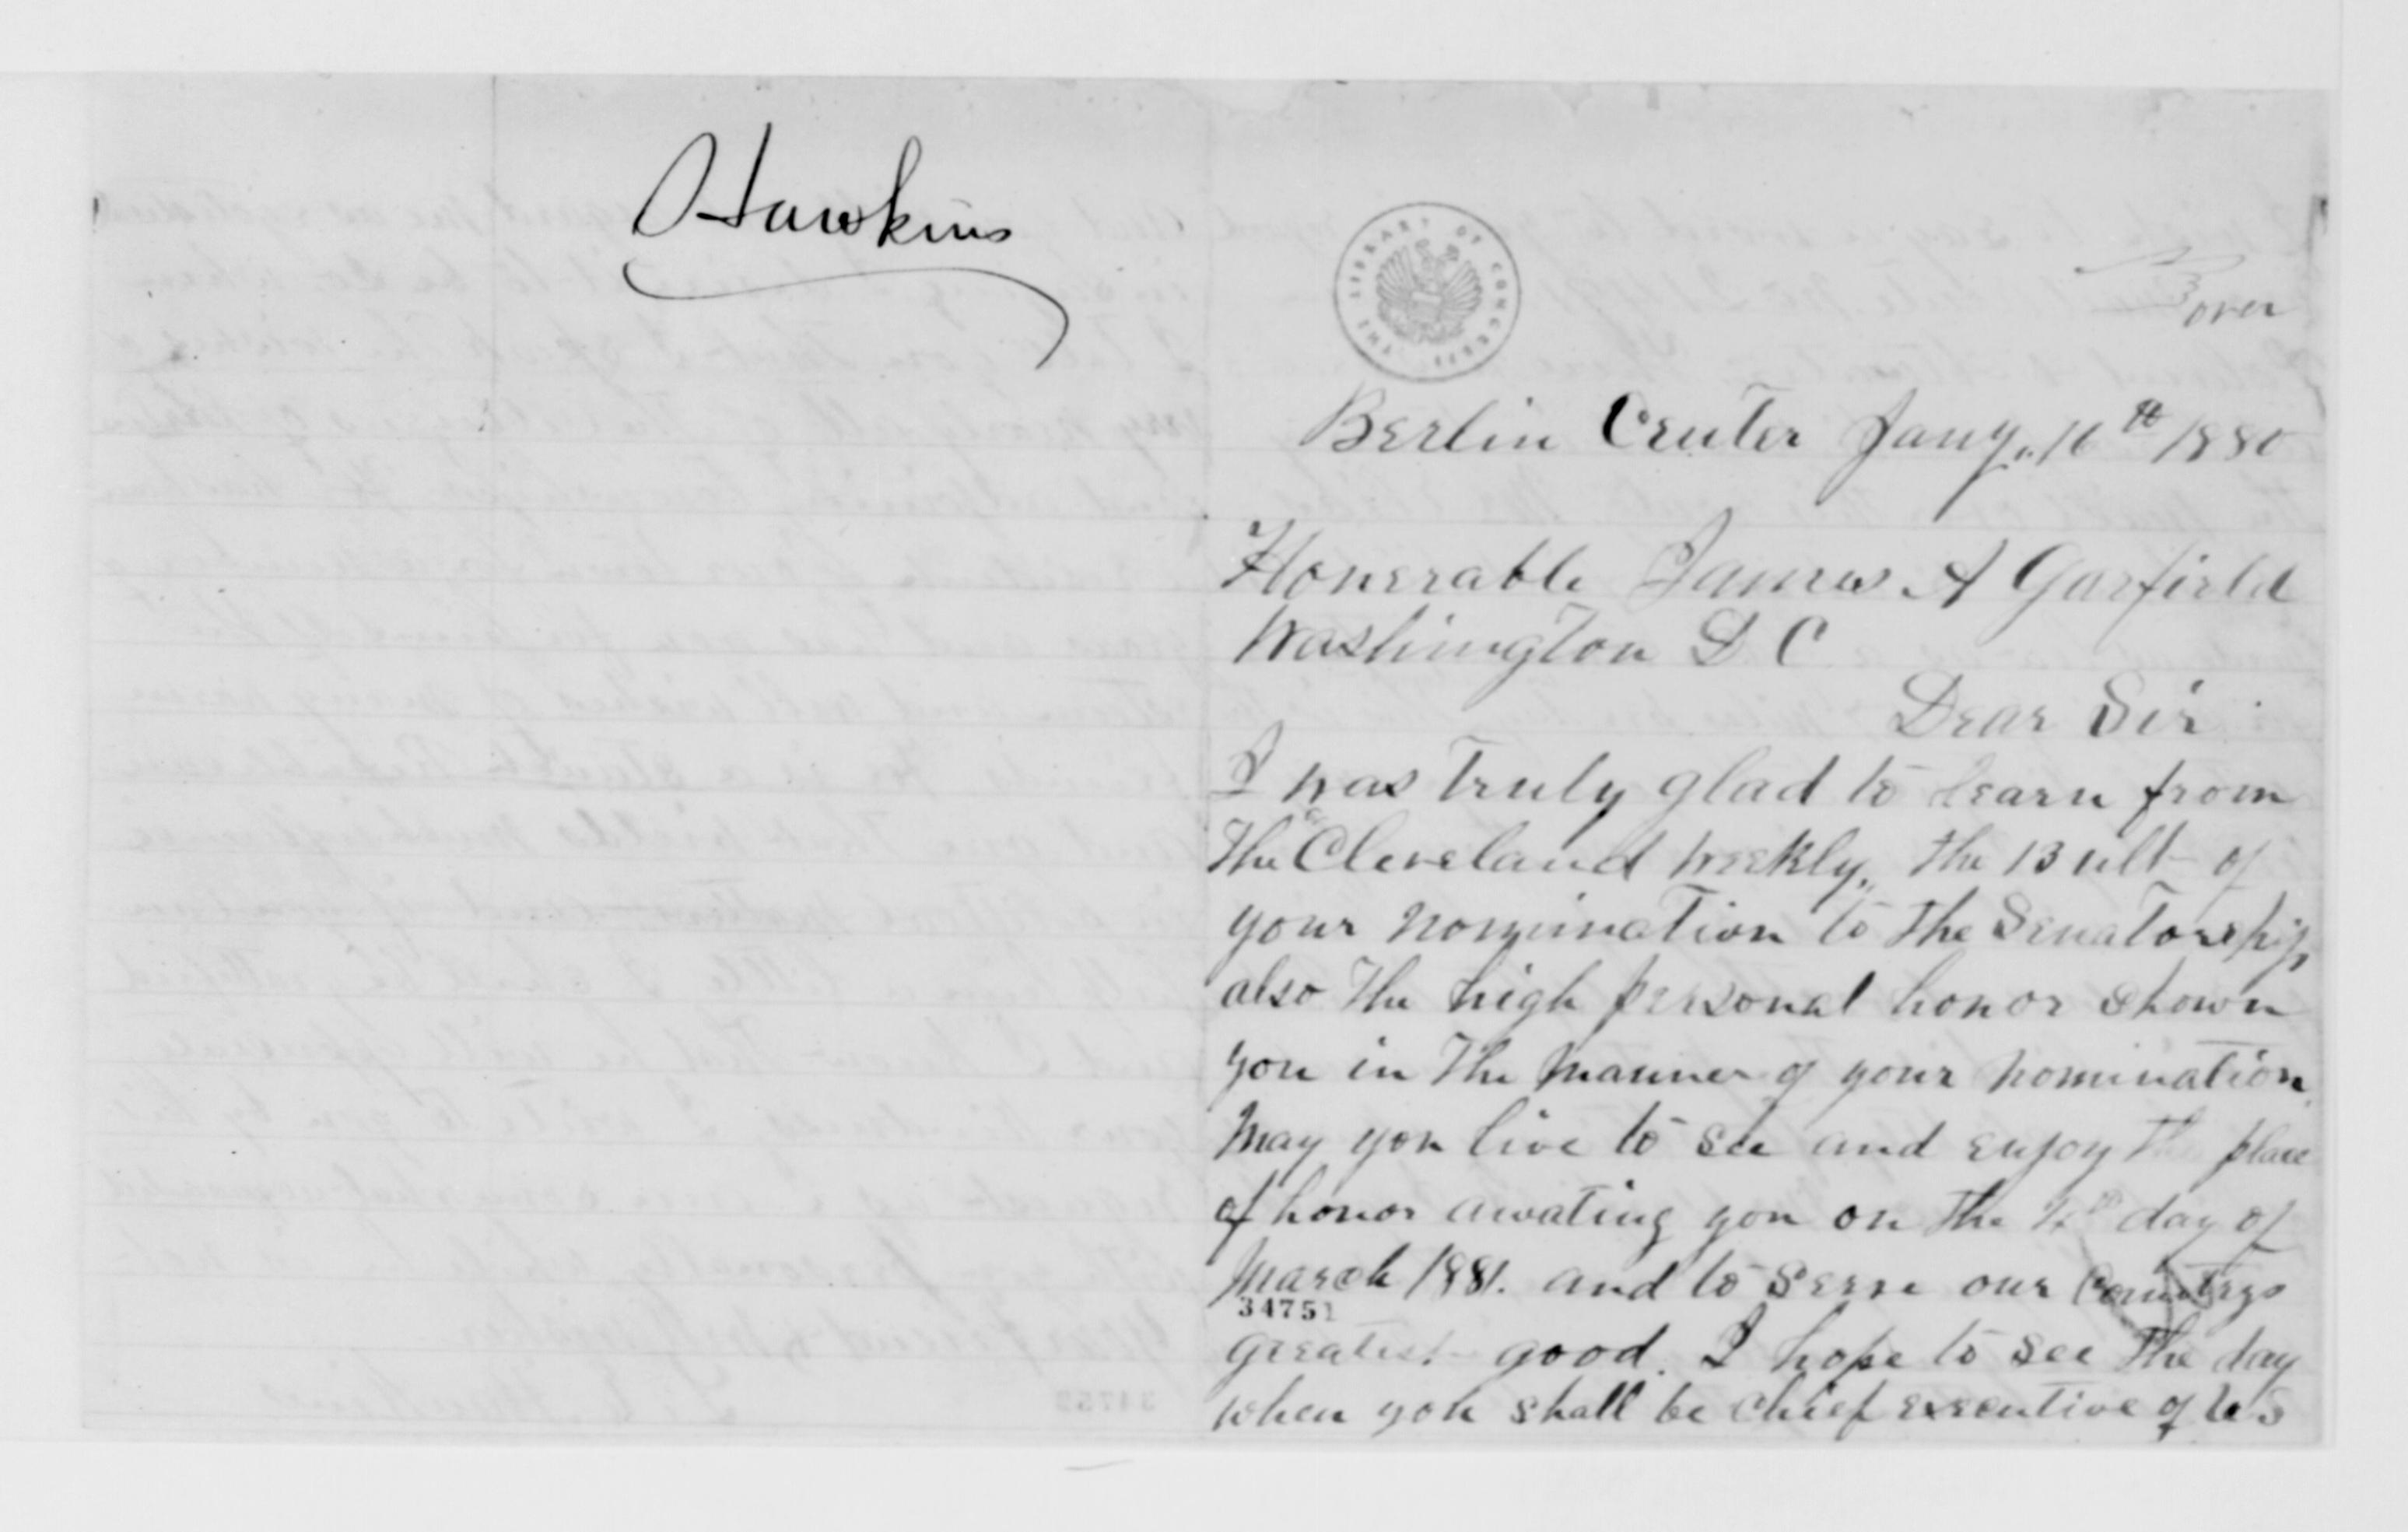 Hawkins
THE LIBRARY OF CONGRESS
over
Berlin Center Jany. 16th 1880
Honerable James A Garfield
Washington D C
Dear Sir
I was truly glad to learn from
the Cleveland weekly, the 13 ult of
your nomination to the Senatorship
also the high personal honor shown
you in the manner of your nomination
may you live to see and enjoy the place
of honor awating you on the 4th day of
March 1881. and to serve our Countrys
34751
greatest good. I hope to see the day
when you shall be chief executive of U S